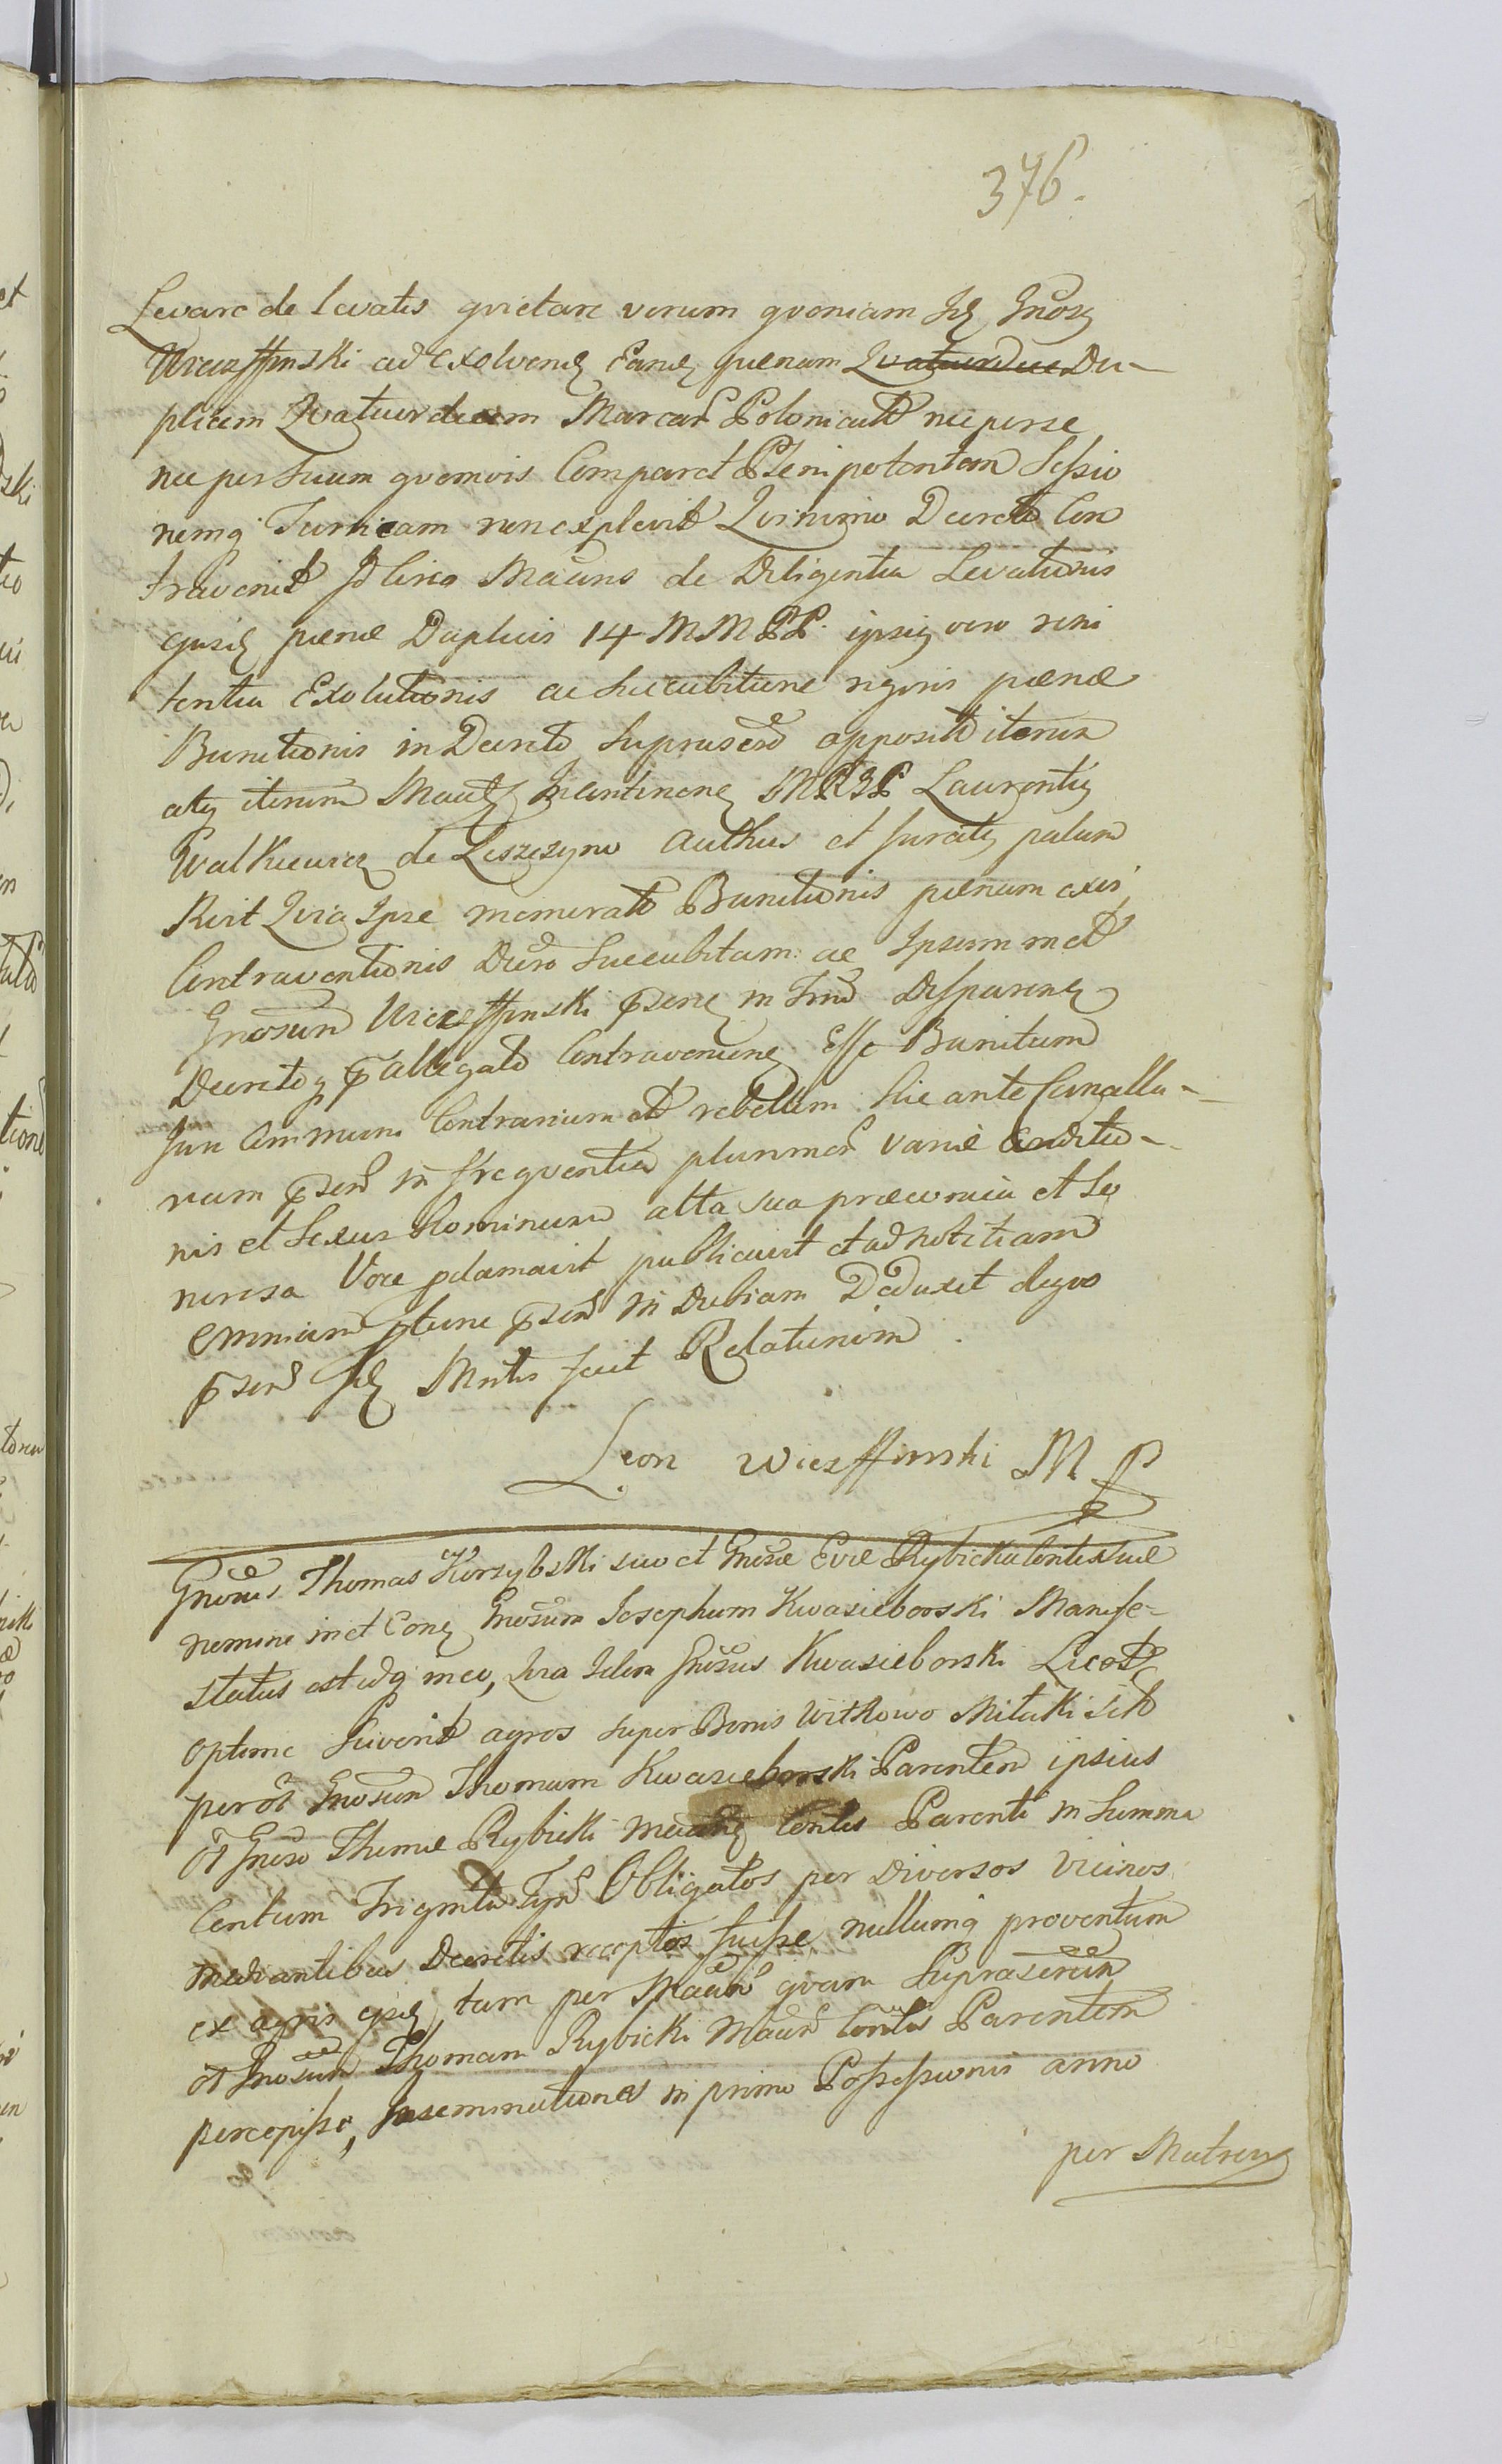 376.
Levare de levatis quietare verum quoniam Idem Gnosus
Wieszffinski ad exolvend Eand paenam Quatuordec Du-
plicem Quatuordecim Marcar Polonical nec per se
nec per suum quemvis Comparet Plenipotentem Sessio
nemq Turricam non explevit Quinimo Decreto Con
travenit Id circo Mams de Diligentia Levationis
ejusd paenae Duplicis 14 MMPP. ipsiq vero reni
tentia Exolutionis ac succubitione rigoris paenae
Banitionis in Decreto suprascro appositae iterum
atq iterum
Laurentiq
Walkiewicz de Leszczyno authus et juratq palam
Rivit Quia Ipse memorato Banitionis paenam exis
Contraventionis Decro Succubitam ac Ipsummet
Gnosum Wieszffinski psene in Trno Disparen
Decretoq pallegato Contravenienq Esse Banitum
Juri Ommuni Contrarium et rebellem hic ante Cancella-
riam psend in frequentia plurimor variae Conditio-
nis et Sexus Hominum alta sua praeconia et So
norosa Voce pclamavit publicavit et ad notitiam
omnium ptunc psend in Dubiam Deduxit de quo
psend Id Mntr fecit Relationem
Leon Wieszffinski M P
Gnosus Thomas Korzybski suo et Gnosae Evae Rybicka Contextuae
nomine in et Conq Gnosum Josephum Kwasieborski Manife-
status est idq in eo, Quia Idem Gnosus Kwasieborski Licet
optime Sciverit agros super Bonis Witkowo Mitaki sito
per ol Gnosum Thomam Kwasieborski Parentem ipsius
ol Gnoso Thomae Rybicki Contis Parenti in Summa
Centum Triginta Tynf Obligatos per Diversos Vicinos
mediantibus Decretis receptos fuisse nullumq proventum
ex agris ejusd tam per Maam quam Suprascrum
ol Gnosum Thomam Rybicki Maan Contis Parentem
percepisse, Inseminationes in primo Possessionis anno
per Matrem